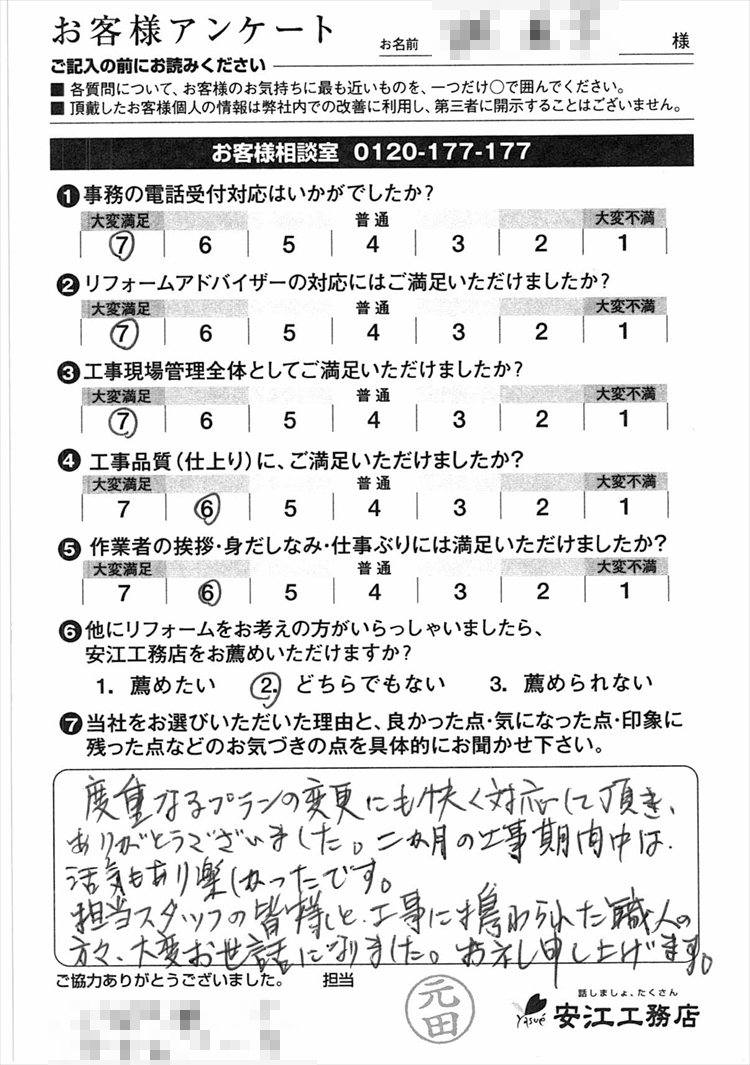 お客様アンケート
お名前 様
ご記入の前にお読みください
■ 各質問について、お客様のお気持ちに最も近いものを、一つだけ○で囲んでください。
■ 頂戴したお客様個人の情報は弊社内での改善に利用し、第三者に開示することはございません。
お客様相談室 0120-177-177
❶ 事務の電話受付対応はいかがでしたか?
大変満足 普通 大変不満
7 6 5 4 3 2 1
❷ リフォームアドバイザーの対応にはご満足いただけましたか?
大変満足 普通 大変不満
7 6 5 4 3 2 1
❸ 工事現場管理全体としてご満足いただけましたか?
大変満足 普通 大変不満
7 6 5 4 3 2 1
❹ 工事品質(仕上り)に、ご満足いただけましたか?
大変満足 普通 大変不満
7 6 5 4 3 2 1
❺ 作業者の挨拶・身だしなみ・仕事ぶりには満足いただけましたか?
大変満足 普通 大変不満
7 6 5 4 3 2 1
❻ 他にリフォームをお考えの方がいらっしゃいましたら、
安江工務店をお薦めいただけますか?
1. 薦めたい 2. どちらでもない 3. 薦められない
❼ 当社をお選びいただいた理由と、良かった点・気になった点・印象に
残った点などのお気づきの点を具体的にお聞かせ下さい。
度重なるプランの変更にも快く対応して頂き、
ありがとうございました。二か月の工事期間中は
活気もあり楽しかったです。
担当スタッフの皆様と、工事に携わられた職人の
方々、大変お世話になりました。お礼申し上げます。
ご協力ありがとうございました。 担当
元田
話しましょ、たくさん
Yasué 安江工務店